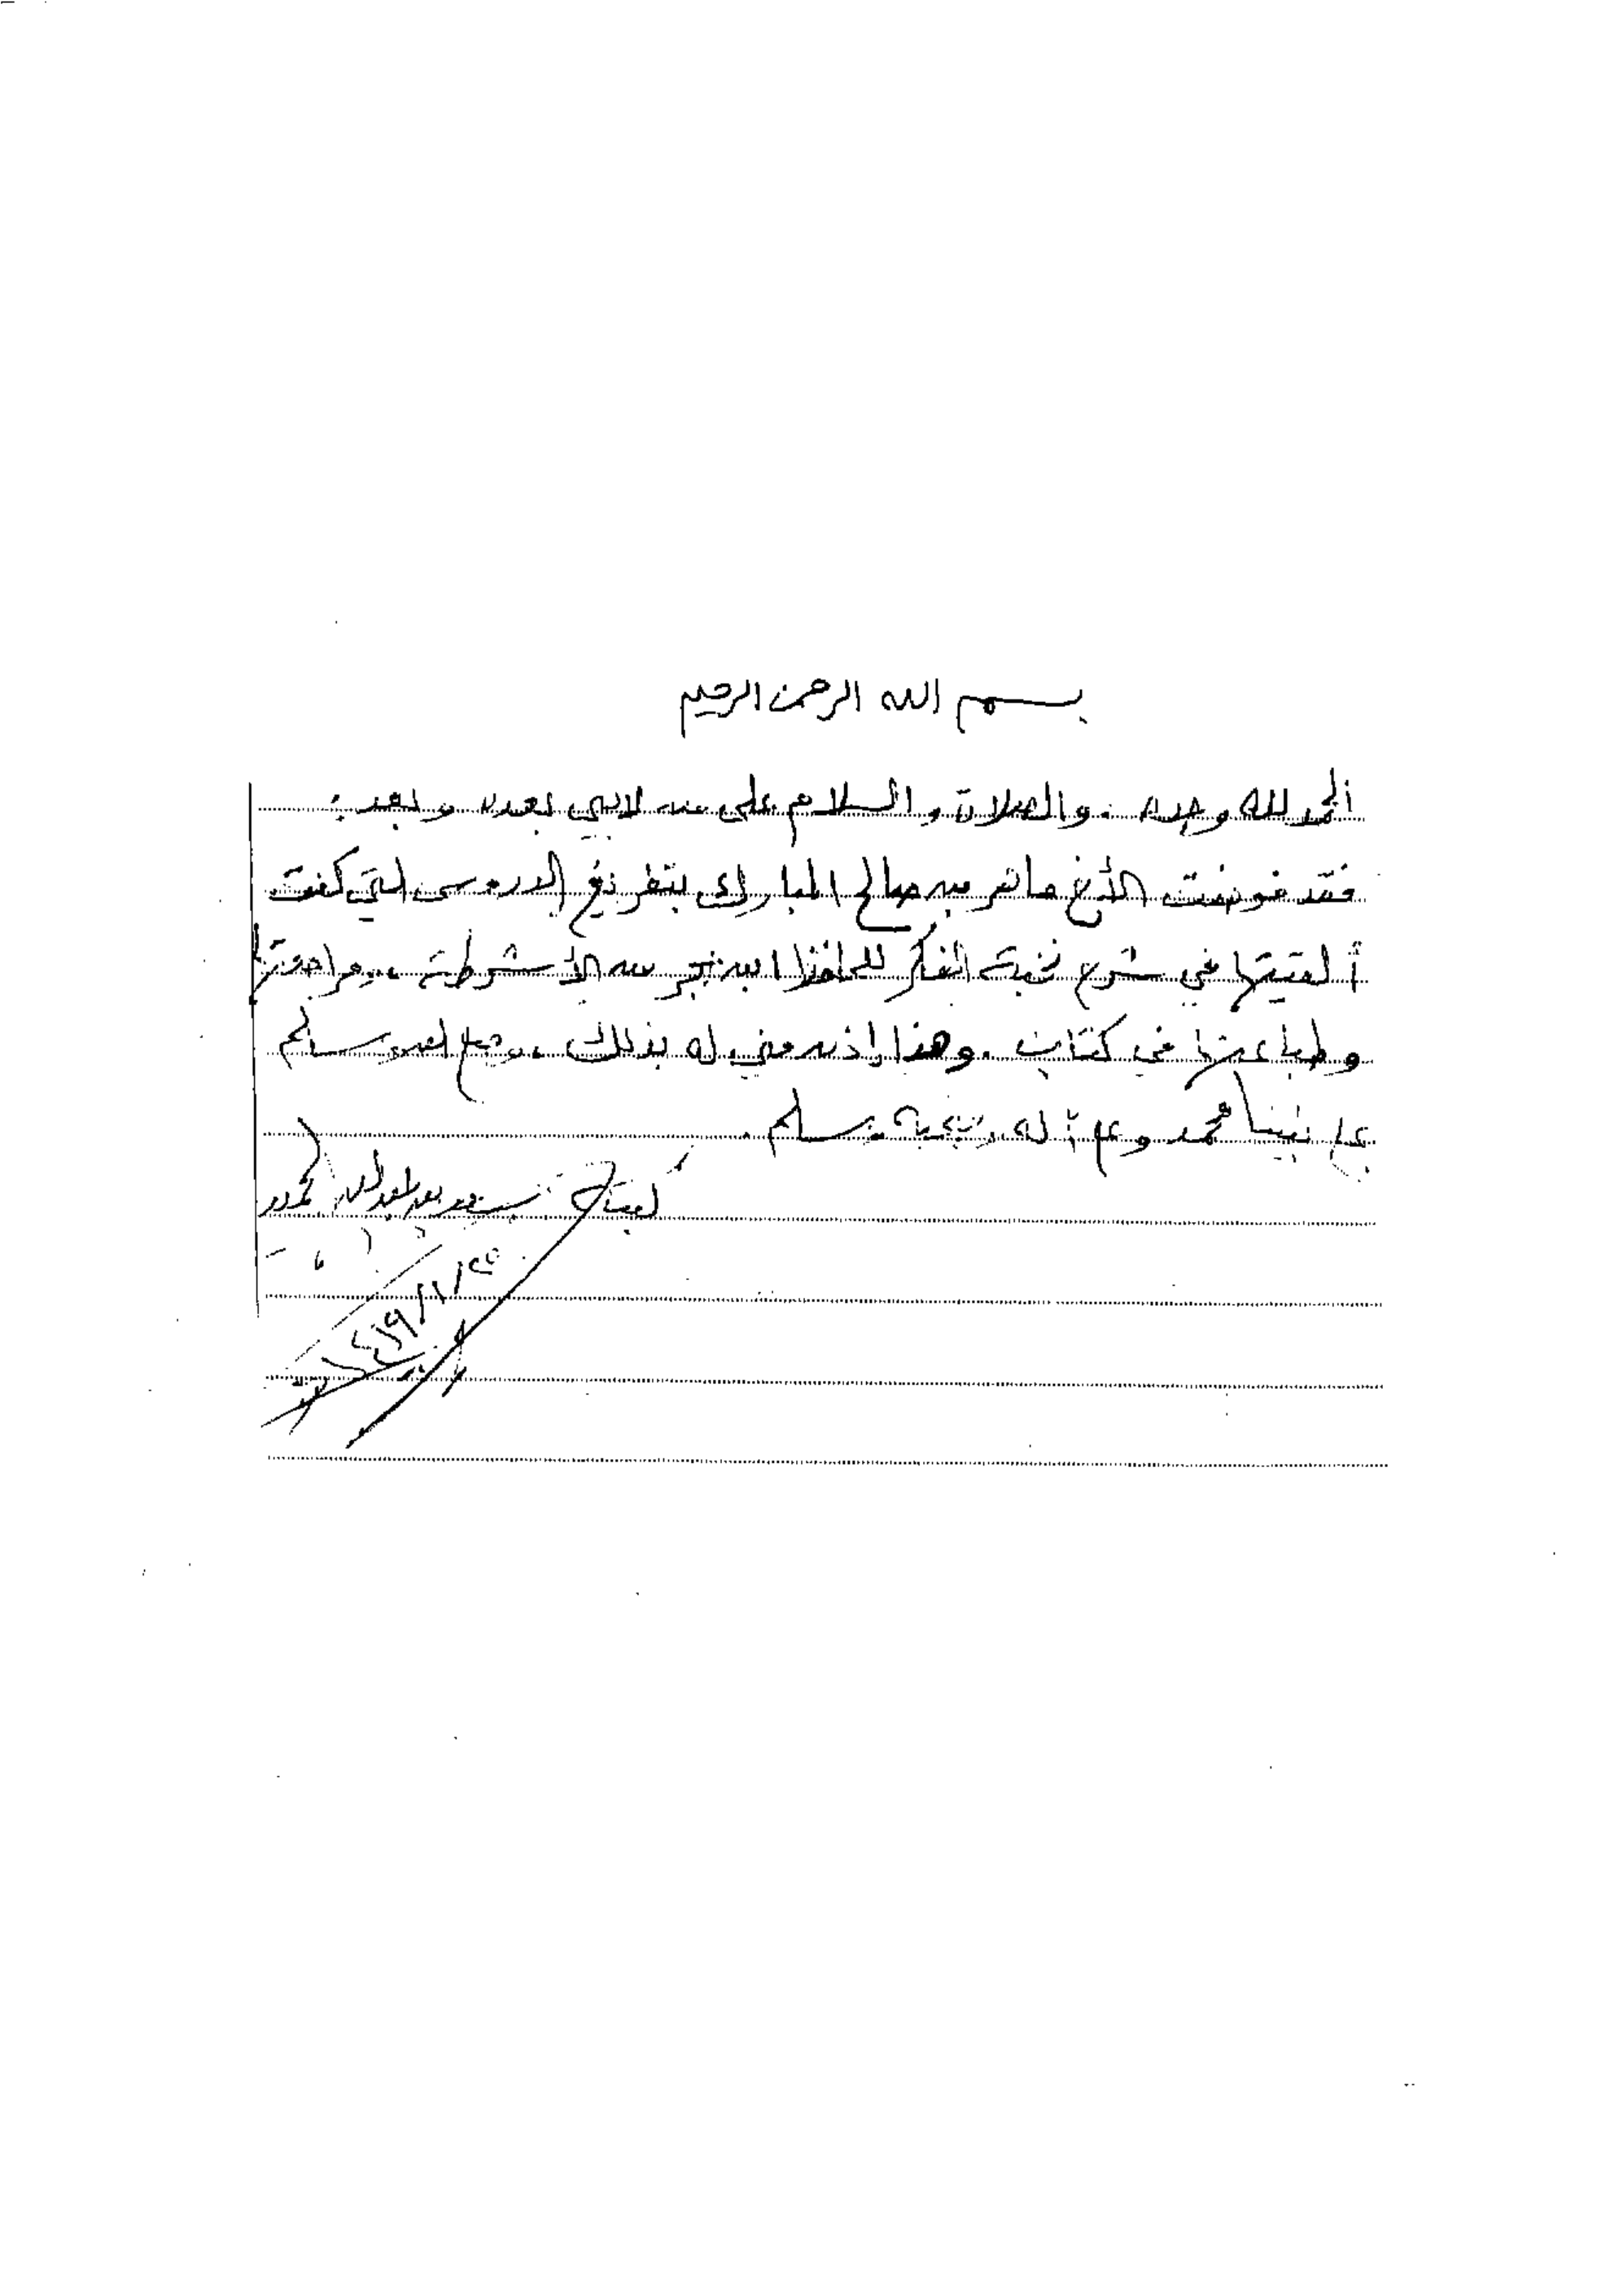 بسم الله الرحمن الرحيم
الحمد لله وحده . والصلاة والسلام على من لا نبي بعده وبعد :
فقد فوضت الأخ ماهر بن صالح المبارك بتفريغ الدروس التي كنت
ألقيتها في شرح نخبة الفكر للحافظ ابن حجر من الأشرطة ، ومراجعتها
وطباعتها في كتاب . وهذا إذن مني له بذلك ، وصلى الله وسلم
على نبينا محمد وعلى آله وصحبه وسلم .
كتبه سعد بن عبدالله الحميد
١٤١٩/١/٢٥